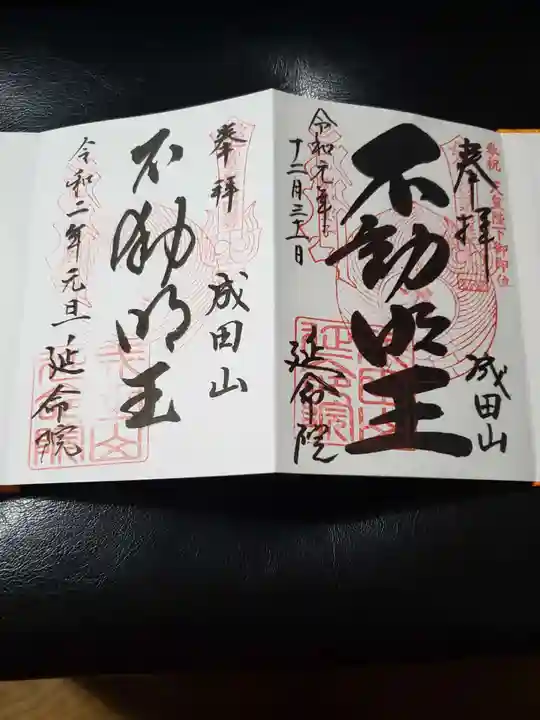 敬祝 天皇陛下御即位
奉拝
成田山
不動明王
令和元年
十二月三十一日
延命院
奉拝
成田山
不動明王
令和二年元旦
延命院